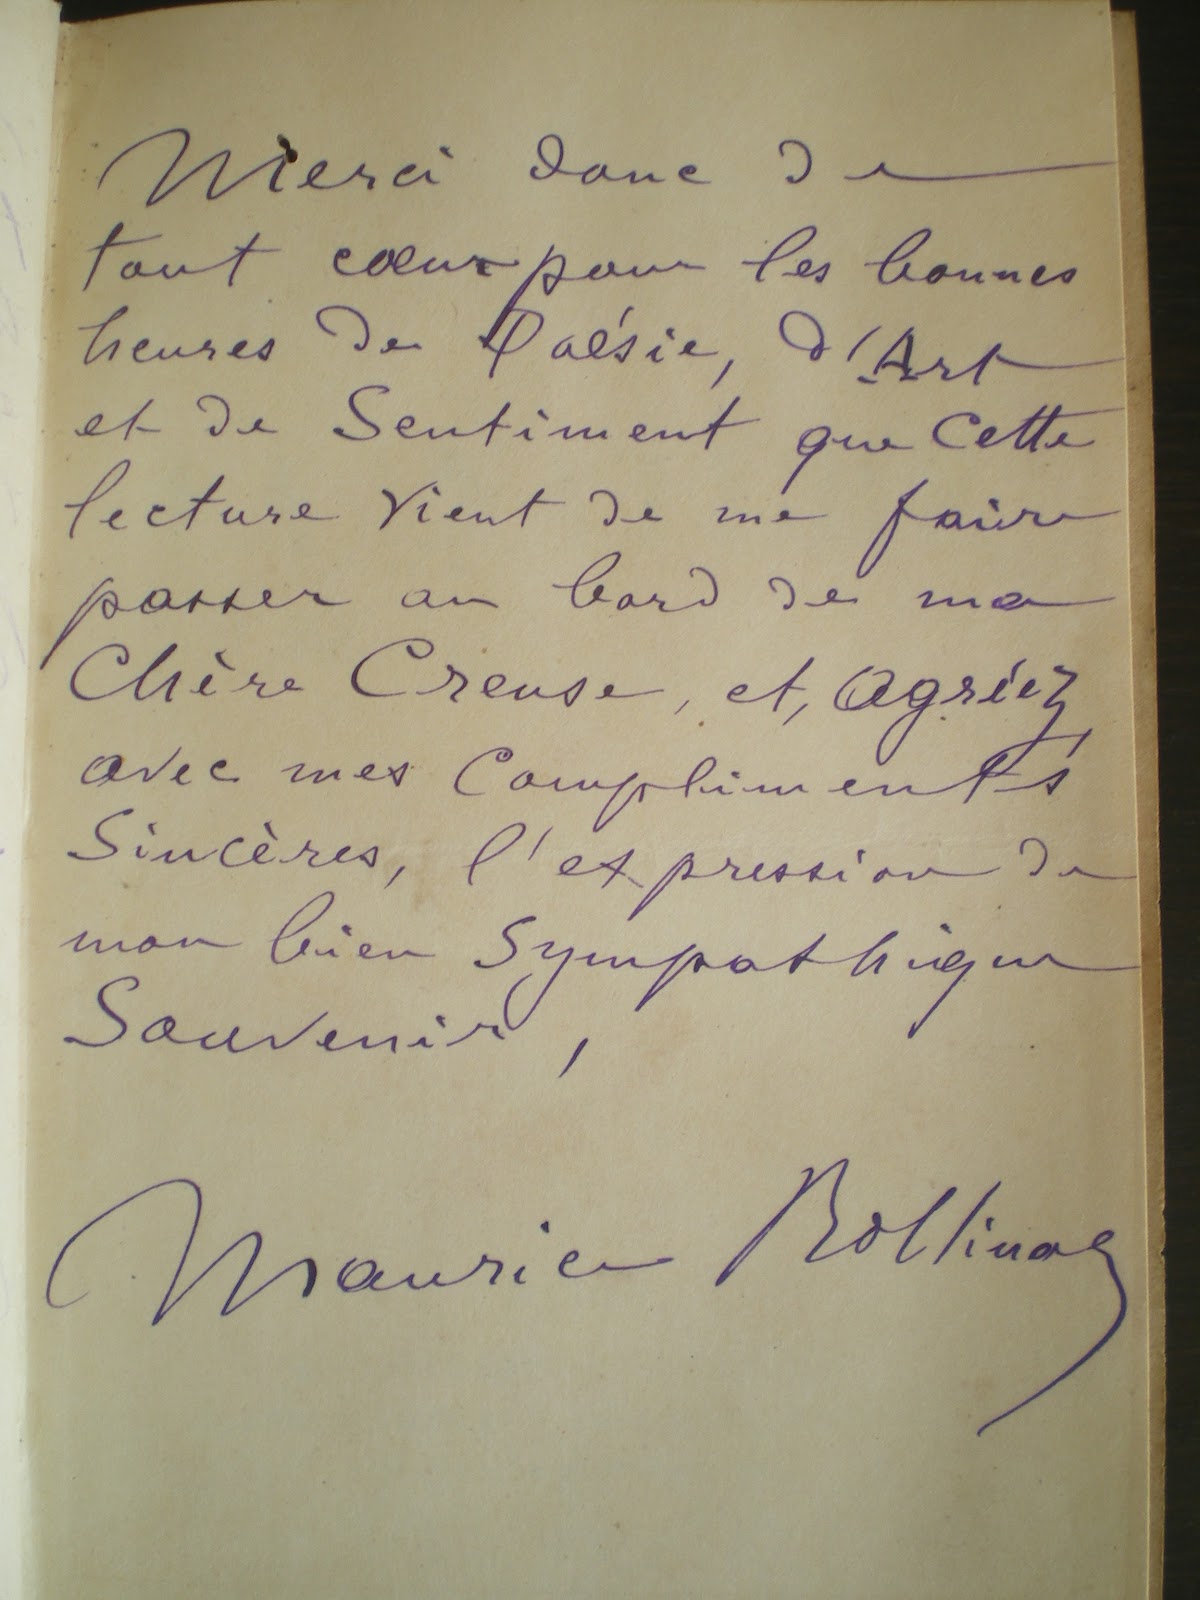 Merci donc de
tout cœur pour les bonnes
heures de Poésie, d'Art
et de Sentiment que cette
lecture vient de me faire
passer au bord de ma
Chère Creuse, et, agréez
avec mes Compliments
Sincères, l'expression de
mon bien Sympathique
Souvenir,
Maurice Rollinat